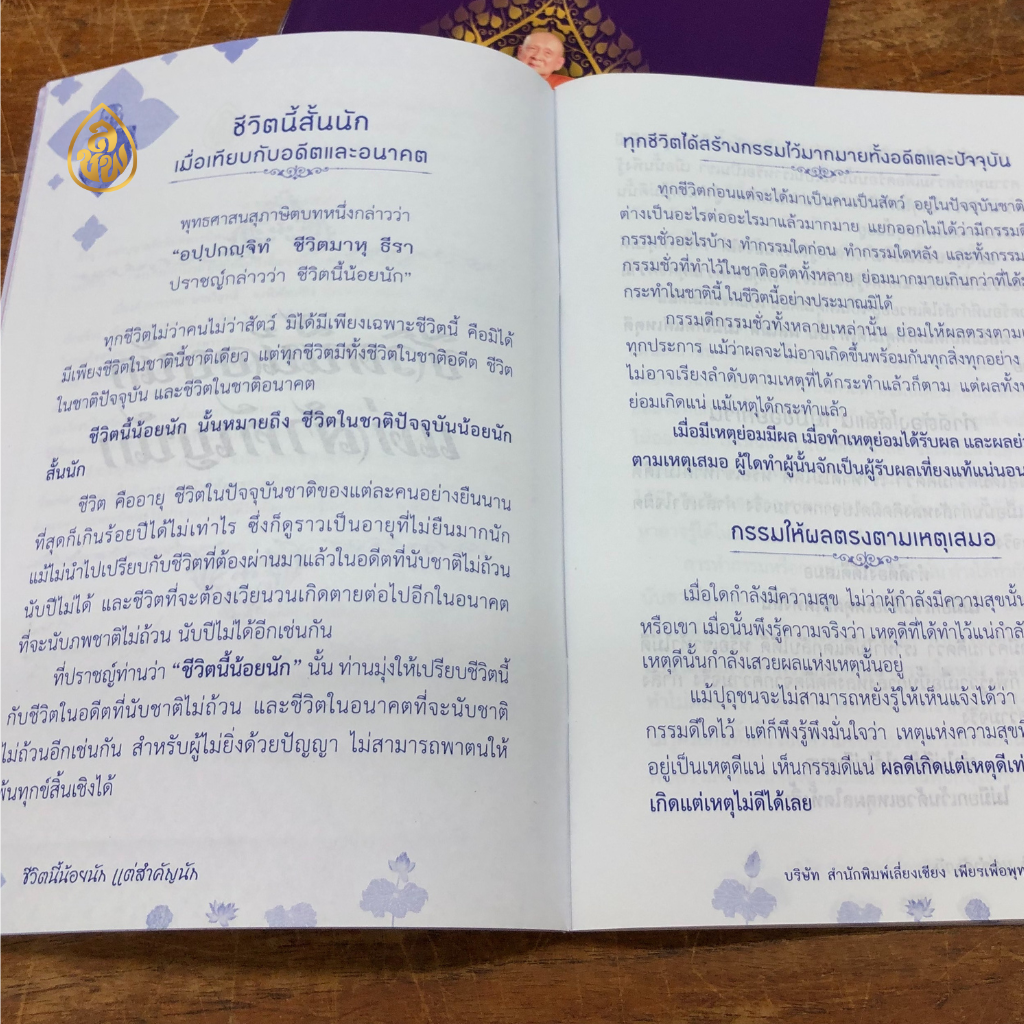 ชีวิตนี้สั้นนัก
เมื่อเทียบกับอดีตและอนาคต
พุทธศาสนสุภาษิตบทหนึ่งกล่าวว่า
“อปฺปกญฺจิทํ ชีวิตมาหุ ธีรา
ปราชญ์กล่าวว่า ชีวิตนี้น้อยนัก”
ทุกชีวิตไม่ว่าคนไม่ว่าสัตว์ มิได้มีเพียงเฉพาะชีวิตนี้ คือมิได้
มีเพียงชีวิตในชาตินี้ชาติเดียว แต่ทุกชีวิตมีทั้งชีวิตในชาติอดีต ชีวิต
ในชาติปัจจุบัน และชีวิตในชาติอนาคต
ชีวิตนี้น้อยนัก นั้นหมายถึง ชีวิตในชาติปัจจุบันน้อยนัก
สั้นนัก
ชีวิต คืออายุ ชีวิตในปัจจุบันชาติของแต่ละคนอย่างยืนนาน
ที่สุดก็เกินร้อยปีได้ไม่เท่าไร ซึ่งก็ดูราวเป็นอายุที่ไม่ยืนมากนัก
แม้ไม่นำไปเปรียบกับชีวิตที่ต้องผ่านมาแล้วในอดีตที่นับชาติไม่ถ้วน
นับปีไม่ได้ และชีวิตที่จะต้องเวียนวนเกิดตายต่อไปอีกในอนาคต
ที่จะนับภพชาติไม่ถ้วน นับปีไม่ได้อีกเช่นกัน
ที่ปราชญ์ท่านว่า “ชีวิตนี้น้อยนัก” นั้น ท่านมุ่งให้เปรียบชีวิตนี้
กับชีวิตในอดีตที่นับชาติไม่ถ้วน และชีวิตในอนาคตที่จะนับชาติ
ไม่ถ้วนอีกเช่นกัน สำหรับผู้ไม่ยิ่งด้วยปัญญา ไม่สามารถพาตนให้
พ้นทุกข์สิ้นเชิงได้
ชีวิตนี้น้อยนัก แต่สำคัญนัก
ทุกชีวิตได้สร้างกรรมไว้มากมายทั้งอดีตและปัจจุบัน
ทุกชีวิตก่อนแต่จะได้มาเป็นคนเป็นสัตว์ อยู่ในปัจจุบันชาติ
ต่างเป็นอะไรต่ออะไรมาแล้วมากมาย แยกออกไม่ได้ว่ามีกรรมดี
กรรมชั่วอะไรบ้าง ทำกรรมใดก่อน ทำกรรมใดหลัง และทั้งกรรม
กรรมชั่วที่ทำไว้ในชาติอดีตทั้งหลาย ย่อมมากมายเกินกว่าที่ได้
กระทำในชาตินี้ ในชีวิตนี้อย่างประมาณมิได้
กรรมดีกรรมชั่วทั้งหลายเหล่านั้น ย่อมให้ผลตรงตาม
ทุกประการ แม้ว่าผลจะไม่อาจเกิดขึ้นพร้อมกันทุกสิ่งทุกอย่าง
ไม่อาจเรียงลำดับตามเหตุที่ได้กระทำแล้วก็ตาม แต่ผลทั้ง
ย่อมเกิดแน่ แม้เหตุได้กระทำแล้ว
เมื่อมีเหตุย่อมมีผล เมื่อทำเหตุย่อมได้รับผล และผล
ตามเหตุเสมอ ผู้ใดทำผู้นั้นจักเป็นผู้รับผลเที่ยงแท้แน่นอน
กรรมให้ผลตรงตามเหตุเสมอ
เมื่อใดกำลังมีความสุข ไม่ว่าผู้กำลังมีความสุขนั้น
หรือเขา เมื่อนั้นพึงรู้ความจริงว่า เหตุดีที่ได้ทำไว้แน่
เหตุดีนั้นกำลังเสวยผลแห่งเหตุนั้นอยู่
แม้ปุถุชนจะไม่สามารถหยั่งรู้ให้เห็นแจ้งได้ว่า
กรรมดีใดไว้ แต่ก็พึงรู้พึงมั่นใจว่า เหตุแห่งความสุข
อยู่เป็นเหตุดีแน่ เห็นกรรมดีแน่ ผลดีเกิดแต่เหตุดี
เกิดแต่เหตุไม่ดีได้เลย
บริษัท สำนักพิมพ์เลี่ยงเชียง เพียรเพื่อพุทธ